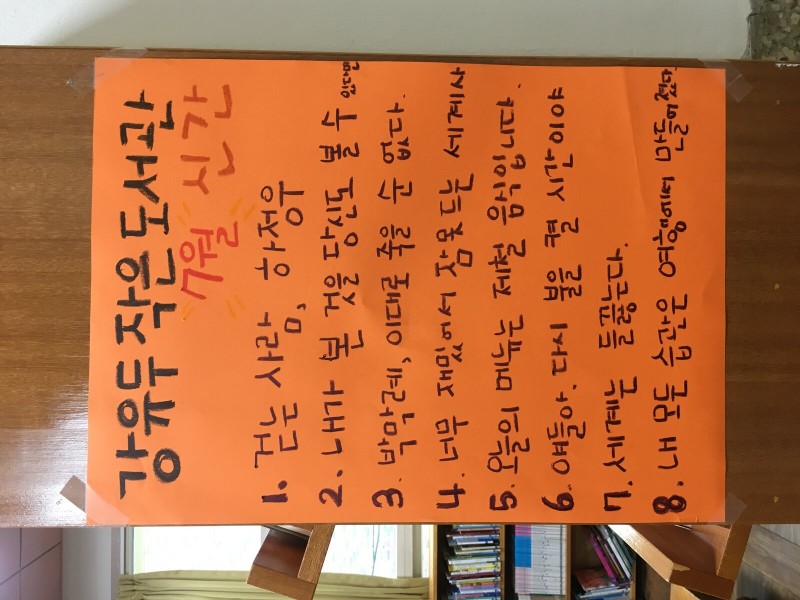 강유두 작은 도서관
7월 신간
1. 걷는 사람, 하정우
2. 내가 본 것을 당신도 볼 수 있다면
3. 박막례, 이대로 죽을 순 없다.
4. 너무 재밌어서 잠 못 드는 세계사
5. 오늘의 메뉴는 제철 음식입니다.
6. 얘들아. 다시 불을 켤 시간이야
7. 세계는 들끓는다.
8. 내 모든 습관은 여행에서 만들어졌다